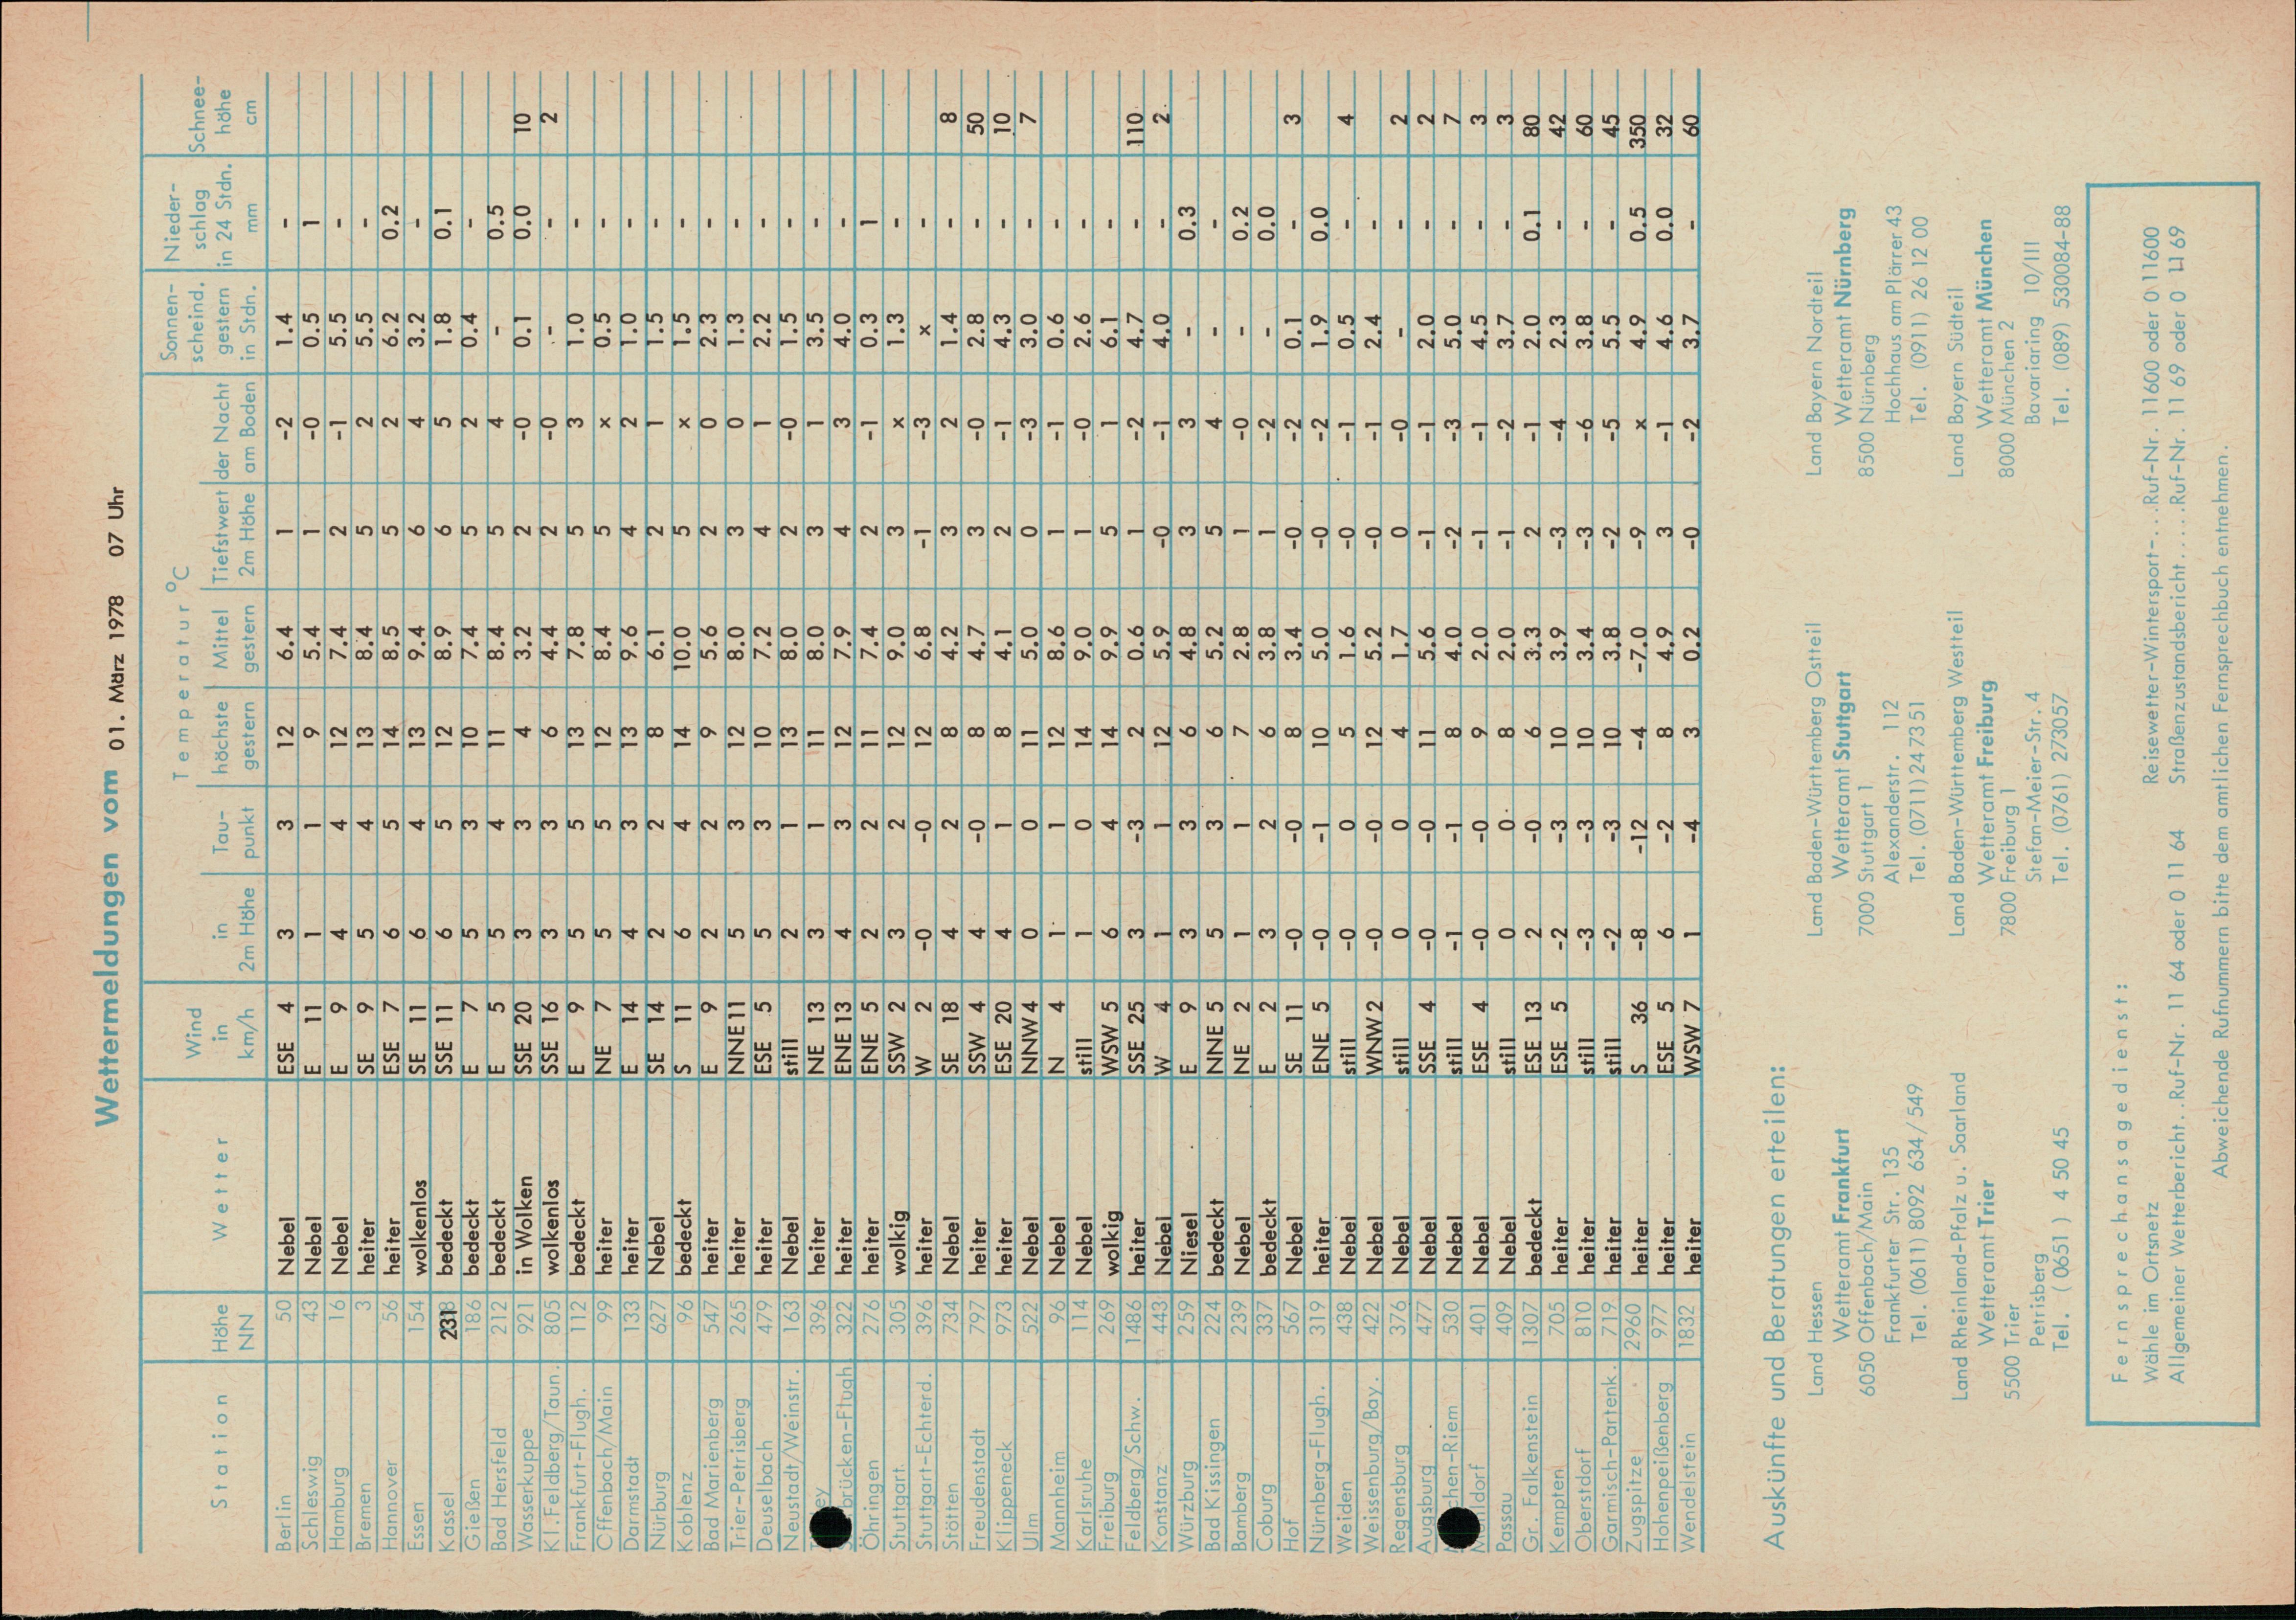 Wettermeldungen vom 01. März 1978 07 Uhr
Station Höhe NN Wetter Wind in km/h Temperatur °C Sonnen-scheind. gestern in Stdn. Nieder-schlag in 24 Stdn. mm Schnee-höhe cm
in 2m Höhe Tau-punkt höchste gestern Mittel gestern Tiefstwert der Nacht 2m Höhe am Boden
Berlin 50 Nebel ESE 4 3 3 12 6.4 1 -2 1.4 -
Schleswig 43 Nebel E 11 1 1 9 5.4 1 -0 0.5 1
Hamburg 16 Nebel E 9 4 4 12 7.4 2 -1 5.5 -
Bremen 3 heiter SE 9 5 4 13 8.4 5 2 5.5 -
Hannover 56 heiter ESE 7 6 5 14 8.5 5 2 6.2 0.2
Essen 154 wolkenlos SE 11 6 4 13 9.4 6 4 3.2 -
Kassel 231 bedeckt SSE 11 6 5 12 8.9 6 5 1.8 0.1
Gießen 186 bedeckt E 7 5 3 10 7.4 5 2 0.4 -
Bad Hersfeld 212 bedeckt E 5 5 4 11 8.4 5 4 - 0.5
Wasserkuppe 921 in Wolken SSE 20 3 3 4 3.2 2 -0 0.1 0.0 10
Kl.Feldberg/Taun. 805 wolkenlos SSE 16 3 3 6 4.4 2 -0 - - 2
Frankfurt-Flugh. 112 bedeckt E 9 5 5 13 7.8 5 3 1.0 -
Offenbach/Main 99 heiter NE 7 5 5 12 8.4 5 x 0.5 -
Darmstadt 133 heiter E 14 4 3 13 9.6 4 2 1.0 -
Nürburg 627 Nebel SE 14 2 2 8 6.1 2 1 1.5 -
Koblenz 96 bedeckt S 11 6 4 14 10.0 5 x 1.5 -
Bad Marienberg 547 heiter E 9 2 2 9 5.6 2 0 2.3 -
Trier-Petrisberg 265 heiter NNE 11 5 3 12 8.0 3 0 1.3 -
Deuselbach 479 heiter ESE 5 5 3 10 7.2 4 1 2.2 -
Neustadt/Weinstr. 163 Nebel still 2 1 13 8.0 2 -0 1.5 -
ey 396 heiter NE 13 3 1 11 8.0 3 1 3.5 -
brücken-Flugh. 322 heiter ENE 13 4 3 12 7.9 4 3 4.0 -
Öhringen 276 heiter ENE 5 2 2 11 7.4 2 -1 0.3 1
Stuttgart 305 wolkig SSW 2 3 2 12 9.0 3 x 1.3 -
Stuttgart-Echterd. 396 heiter W 2 -0 -0 12 6.8 -1 -3 x -
Stötten 734 Nebel SE 18 4 2 8 4.2 3 2 1.4 - 8
Freudenstadt 797 heiter SSW 4 4 -0 8 4.7 3 -0 2.8 - 50
Klippeneck 973 heiter ESE 20 4 1 8 4.1 2 -1 4.3 - 10
Ulm 522 Nebel NNW 4 0 0 11 5.0 0 -3 3.0 - 7
Mannheim 96 Nebel N 4 1 1 12 8.6 1 -1 0.6 -
Karlsruhe 114 Nebel still 1 0 14 9.0 1 -0 2.6 -
Freiburg 269 wolkig WSW 5 6 4 14 9.9 5 1 6.1 -
Feldberg/Schw. 1486 heiter SSE 25 3 -3 2 0.6 1 -2 4.7 - 110
Konstanz 443 Nebel W 4 1 1 12 5.9 -0 -1 4.0 - 2
Würzburg 259 Niesel E 9 3 3 6 4.8 3 3 - 0.3
Bad Kissingen 224 bedeckt NNE 5 5 3 6 5.2 5 4 - -
Bamberg 239 Nebel NE 2 1 1 7 2.8 1 -0 - 0.2
Coburg 337 bedeckt E 2 3 2 6 3.8 1 -2 - 0.0
Hof 567 Nebel SE 11 -0 -0 8 3.4 -0 -2 0.1 - 3
Nürnberg-Flugh. 319 heiter ENE 5 -0 -1 10 5.0 -0 -2 1.9 0.0
Weiden 438 Nebel still -0 0 5 1.6 -0 -1 0.5 - 4
Weissenburg/Bay. 422 Nebel WNW 2 -0 -0 12 5.2 -0 -1 2.4 -
Regensburg 376 Nebel still 0 0 4 1.7 0 -0 - - 2
Augsburg 477 Nebel SSE 4 -0 -0 11 5.6 -1 -1 2.0 - 2
chen-Riem 530 Nebel still -1 -1 8 4.0 -2 -3 5.0 - 7
ldorf 401 Nebel ESE 4 -0 -0 9 2.0 -1 -1 4.5 - 3
Passau 409 Nebel still 0 0 8 2.0 -1 -2 3.7 - 3
Gr. Falkenstein 1307 bedeckt ESE 13 2 -0 6 3.3 2 -1 2.0 0.1 80
Kempten 705 heiter ESE 5 -2 -3 10 3.9 -3 -4 2.3 - 42
Oberstdorf 810 heiter still -3 -3 10 3.4 -3 -6 3.8 - 60
Garmisch-Partenk. 719 heiter still -2 -3 10 3.8 -2 -5 5.5 - 45
Zugspitze 2960 heiter S 36 -8 -12 -4 -7.0 -9 x 4.9 0.5 350
Hohenpeißenberg 977 heiter ESE 5 6 -2 8 4.9 3 -1 4.6 0.0 32
Wendelstein 1832 heiter WSW 7 1 -4 3 0.2 -0 -2 3.7 - 60
Auskünfte und Beratungen erteilen:
Land Hessen
Wetteramt Frankfurt
6050 Offenbach/Main
Frankfurter Str. 135
Tel. (0611) 8092 634/549
Land Baden-Württemberg Ostteil
Wetteramt Stuttgart
7000 Stuttgart 1
Alexanderstr. 112
Tel. (0711) 24 73 51
Land Bayern Nordteil
Wetteramt Nürnberg
8500 Nürnberg
Hochhaus am Plärrer 43
Tel. (0911) 26 12 00
Land Rheinland-Pfalz u. Saarland
Wetteramt Trier
5500 Trier
Petrisberg
Tel. (0651) 4 50 45
Land Baden-Württemberg Westteil
Wetteramt Freiburg
7800 Freiburg 1
Stefan-Meier-Str. 4
Tel. (0761) 273057
Land Bayern Südteil
Wetteramt München
8000 München 2
Bavariaring 10/III
Tel. (089) 530084-88
Fernsprechansagedienst:
Wähle im Ortsnetz Reisewetter-Wintersport-...Ruf-Nr. 11600 oder 0 11600
Allgemeiner Wetterbericht..Ruf-Nr. 11 64 oder 0 11 64 Straßenzustandsbericht.....Ruf-Nr. 11 69 oder 0 11 69
Abweichende Rufnummern bitte dem amtlichen Fernsprechbuch entnehmen.